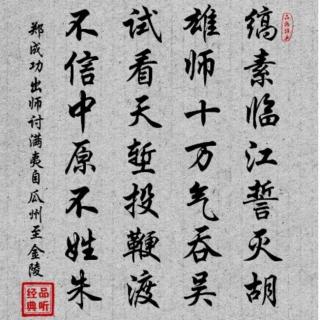 缟素临江誓灭胡
雄师十万气吞吴
试看天堑投鞭渡
不信中原不姓朱
郑成功 出师讨满夷自瓜州至金陵
品听
经典